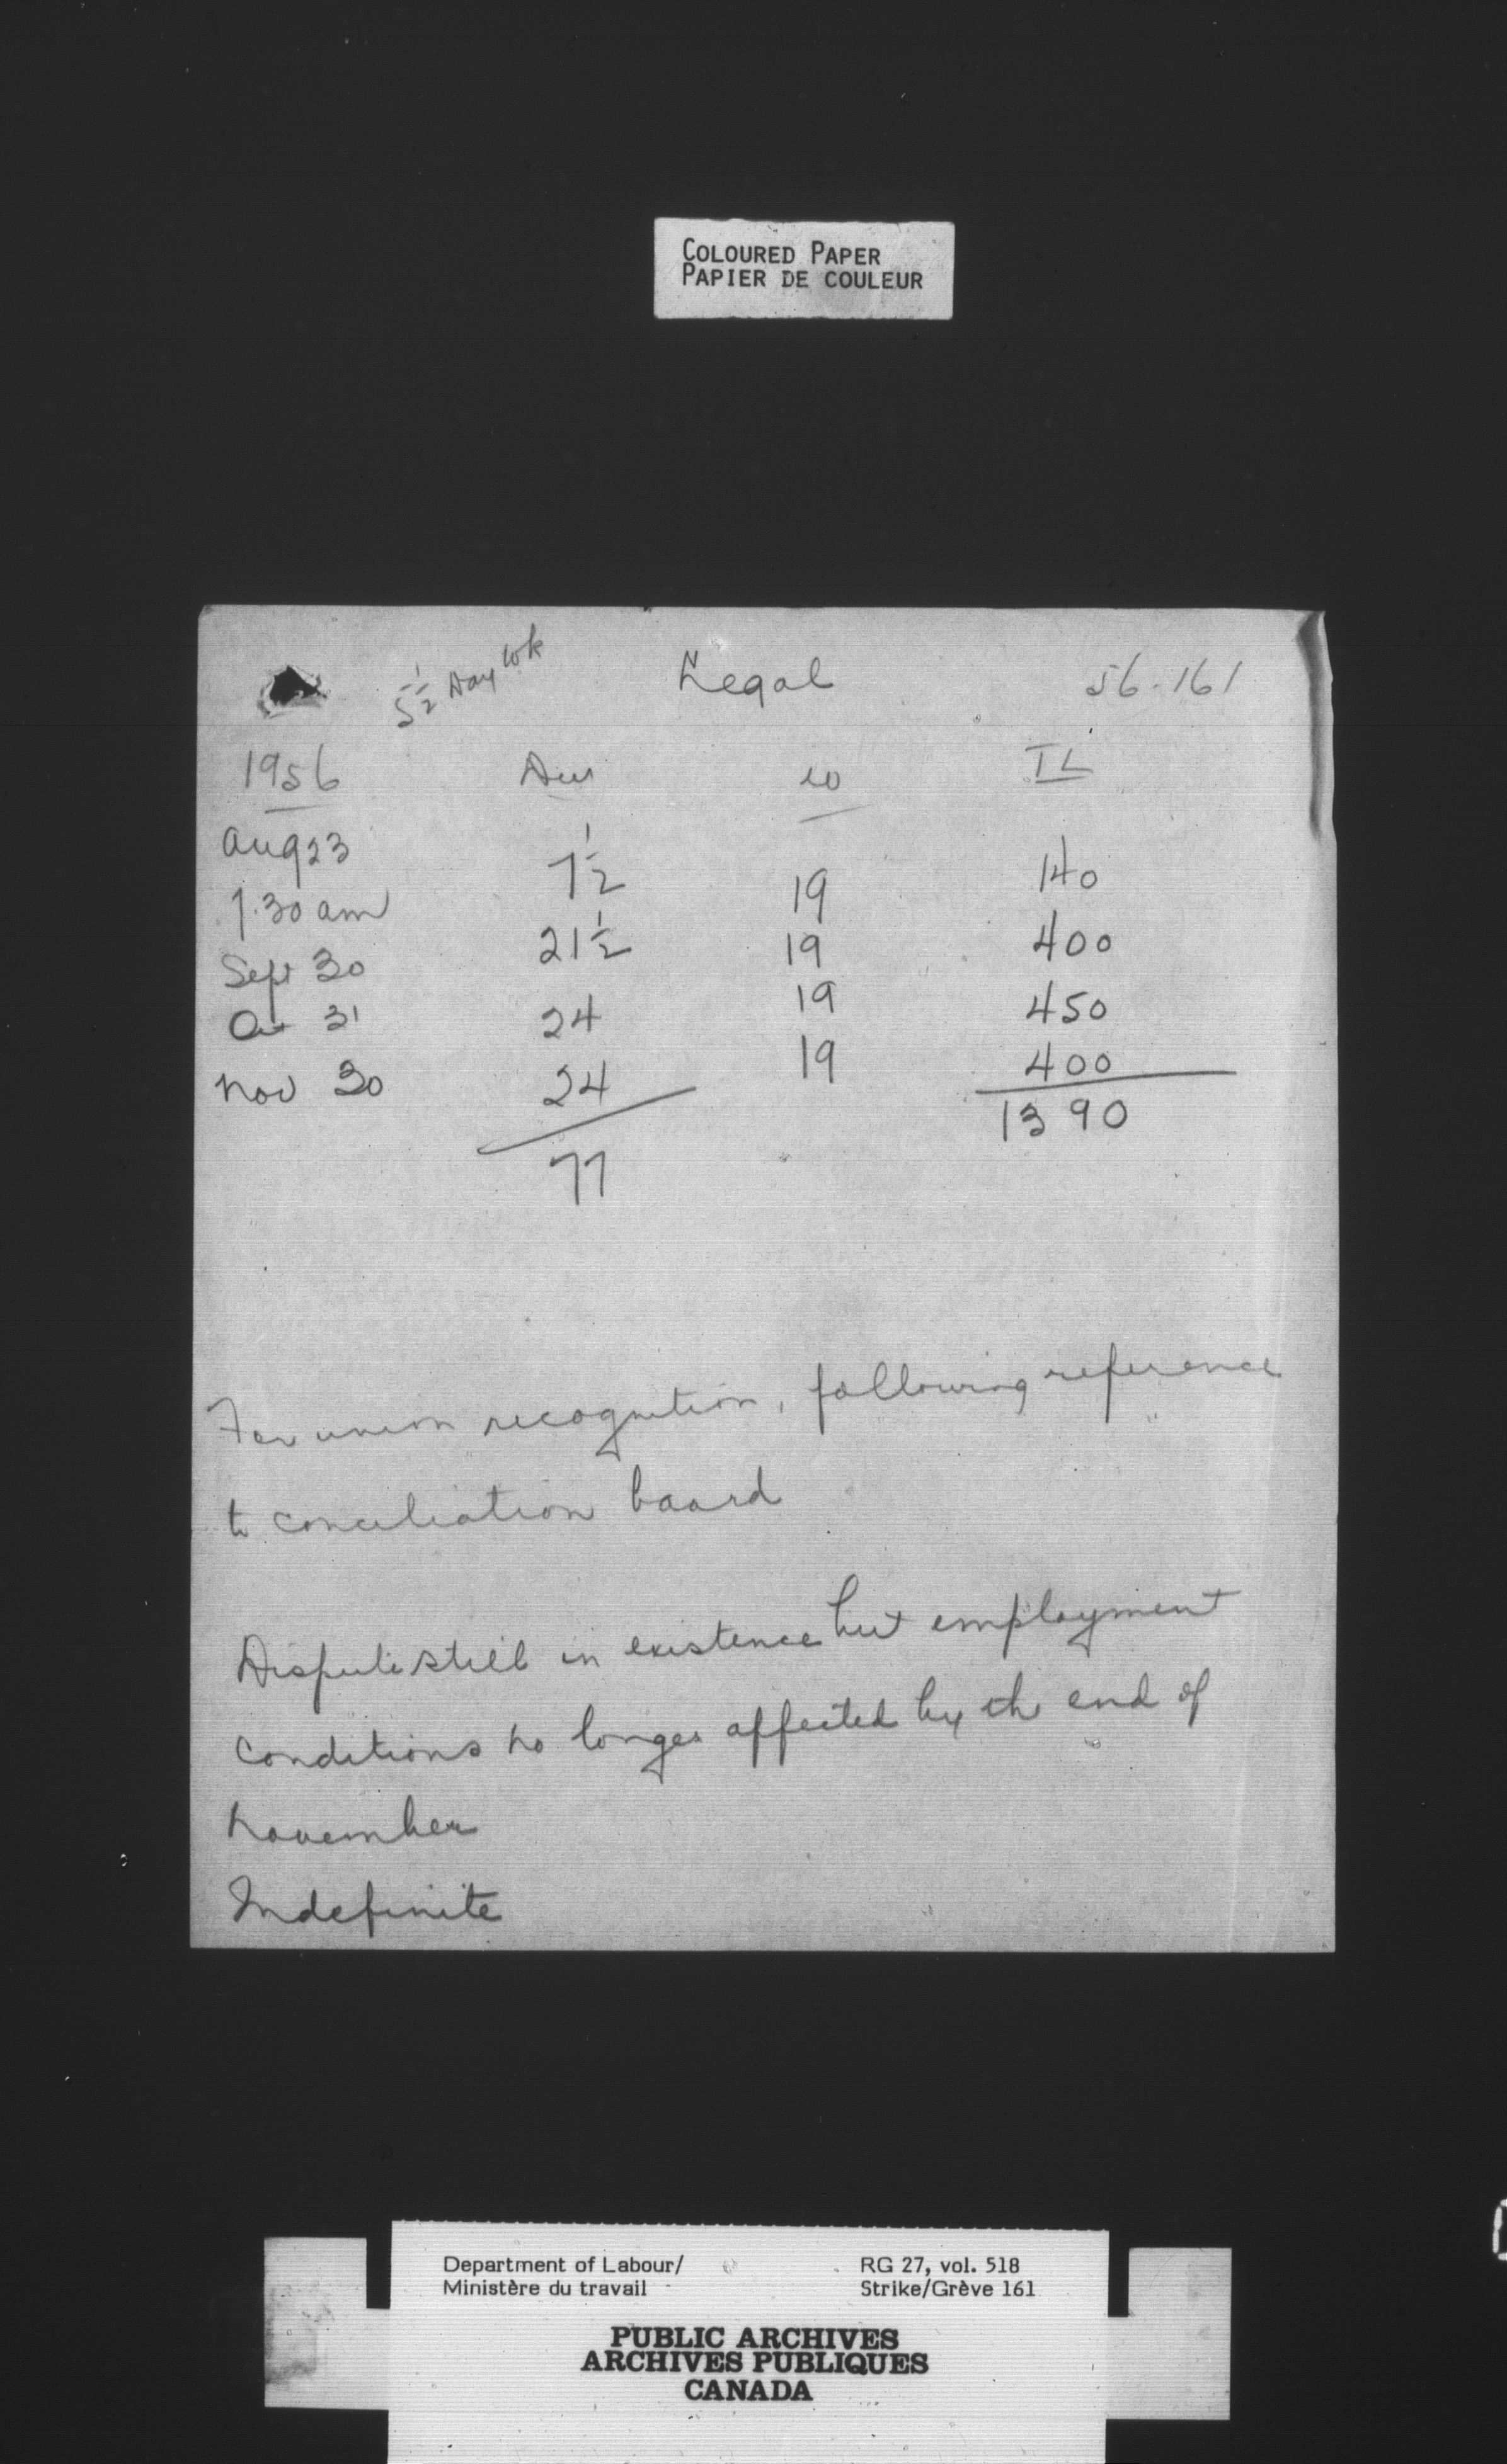 COLOURED PAPER
PAPIER DE COULEUR
5 1/2 Day wk Legal 56-161
1956 Dur w TL
Aug 23
7.30 am 7 1/2 19 140
Sept 30 21 1/2 19 400
Oct 31 24 19 450
Nov 30 24 19 400
77 1390
For union recognition, following reference
to conciliation board
Dispute still in existence but employment
conditions no longer affected by the end of
November
Indefinite
Department of Labour/ RG 27, vol. 518
Ministère du travail Strike/Grève 161
PUBLIC ARCHIVES
ARCHIVES PUBLIQUES
CANADA